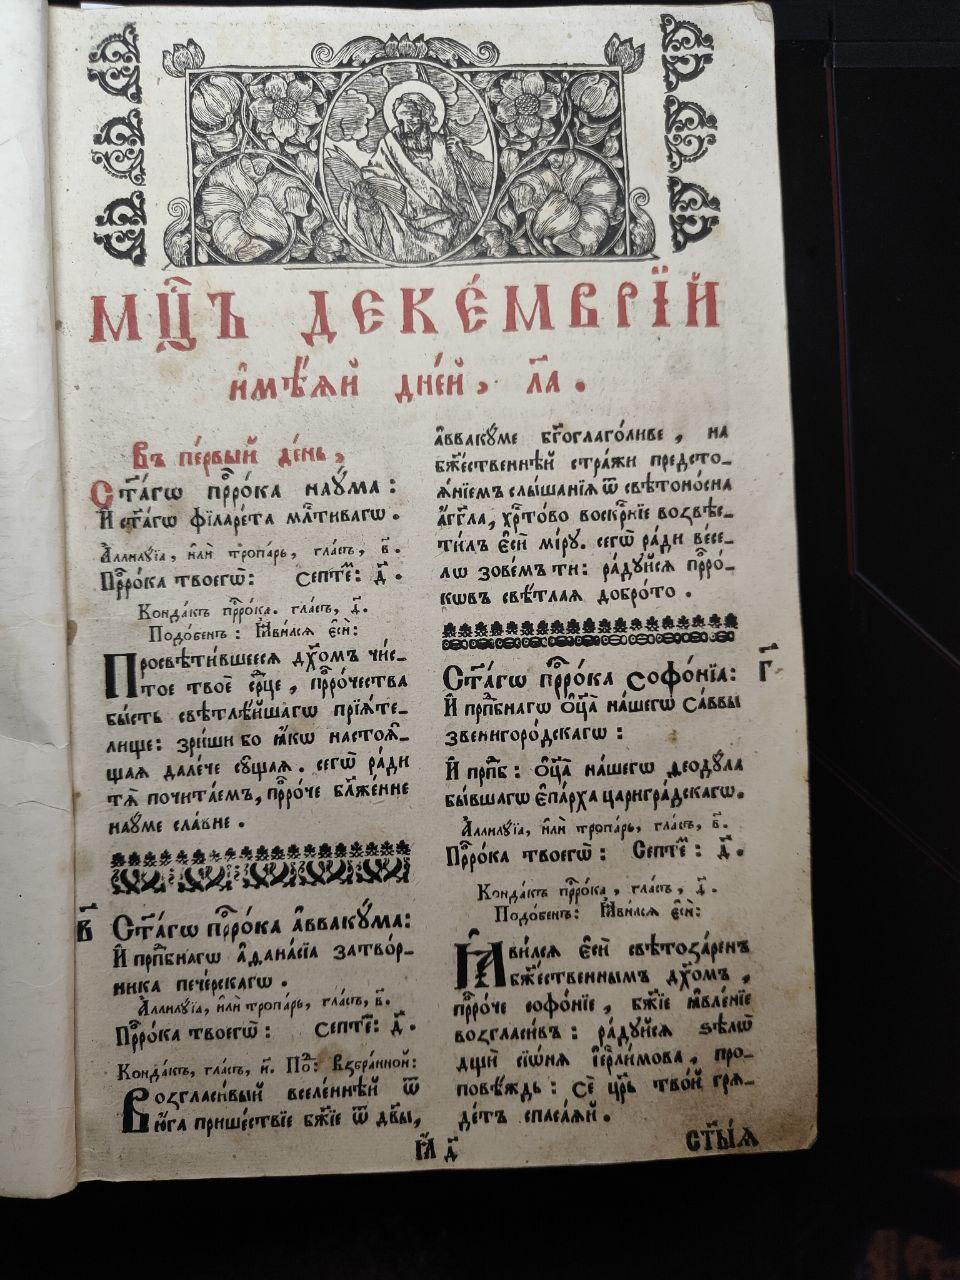 МЦ҃Ъ ДЕКЕ́МВРЇЙ
и҆мѣ́ѧй дне́й, л҃а.
Въ пе́рвый де́нь,
Ст҃а́гѡ прⷪ҇ро́ка наꙋ́ма:
И҆ ст҃а́гѡ фїларе́та млⷭ҇тиваго.
А҆ллилꙋ́їа, и҆лѝ тропа́рь, гла́съ, в҃.
Прⷪ҇ро́ка твоегѡ̀: Септе́: д҃.
Конда́къ прⷪ҇ро́ка. гла́съ, д҃.
Подо́бенъ: Ꙗ҆ви́лсѧ є҆сѝ:
Просвѣти́вшеесѧ дх҃омъ чи́с-
тое твоѐ се́рдце, прⷪ҇ро́чества
бы́сть свѣтлѣ́йшагѡ прїѧ́те-
лище: зри́ши бо ꙗ҆́кѡ настоѧ̑-
щаѧ дале́че сꙋ̑щаѧ. сегѡ̀ ра́ди
тѧ̀ почита́емъ, прⷪ҇ро́че бл҃же́нне
наꙋ́ме сла́вне.
в҃ Ст҃а́гѡ прⷪ҇ро́ка а҆ввакꙋ́ма:
И҆ прпⷣбнагѡ а҆ѳана́сїа затво́р-
ника пече́рскагѡ.
А҆ллилꙋ́їа, и҆лѝ тропа́рь, гла́съ, в҃.
Прⷪ҇ро́ка твоегѡ̀: Септе́: д҃.
Конда́къ, гла́съ, и҃. По́ⷣ: Взбра́нной:
Возгласи́вый вселе́ннѣй ѿ
ю҆́га прише́ствїе бж҃їе ѿ дв҃ы,
а҆ввакꙋ́ме бг҃оглаго́ливе, на
бж҃е́ственнѣй стра́жи предсто-
ѧ́нїемъ слы́шанїѧ ѿ свѣтоно́сна
а҆́гг҃ла, хрⷭ҇то́во воскрⷭ҇нїе возвѣс-
ти́лъ є҆сѝ мі́рꙋ. сегѡ̀ ра́ди ве́се-
лѡ зове́мъ ти: ра́дꙋйсѧ прⷪ҇ро́-
кѡвъ свѣ́тлаѧ добро́то.
Ст҃а́гѡ прⷪ҇ро́ка софо́нїа: г҃
И҆ прпⷣбнагѡ ѻ҆ц҃а̀ на́шегѡ са́ввы
звенигоро́дскагѡ:
И҆ прпⷣб: ѻ҆ц҃а̀ на́шегѡ ѳеодꙋ́ла
бы́вшагѡ є҆па́рха царигра́дскагѡ.
А҆ллилꙋ́їа, и҆лѝ тропа́рь, гла́съ, в҃.
Прⷪ҇ро́ка твоегѡ̀: Септе́: д҃.
Конда́къ прⷪ҇ро́ка, гла́съ, д҃.
Подо́бенъ: Ꙗ҆ви́лсѧ є҆сѝ:
Ꙗ҆ви́лсѧ є҆сѝ свѣтоза́ренъ
бж҃е́ственнымъ дх҃омъ,
прⷪ҇ро́че софо́нїе, бж҃їе ꙗ҆вле́нїе
возгласи́въ: ра́дꙋйсѧ ѕѣлѡ̀
дщѝ сїѡ́нѧ і҆ерⷭ҇ли́мова, про-
повѣ́ждь: сѐ цр҃ь тво́й грѧ-
де́тъ спаса́ѧй.
гл҃ д҃ ст҃ы́ѧ